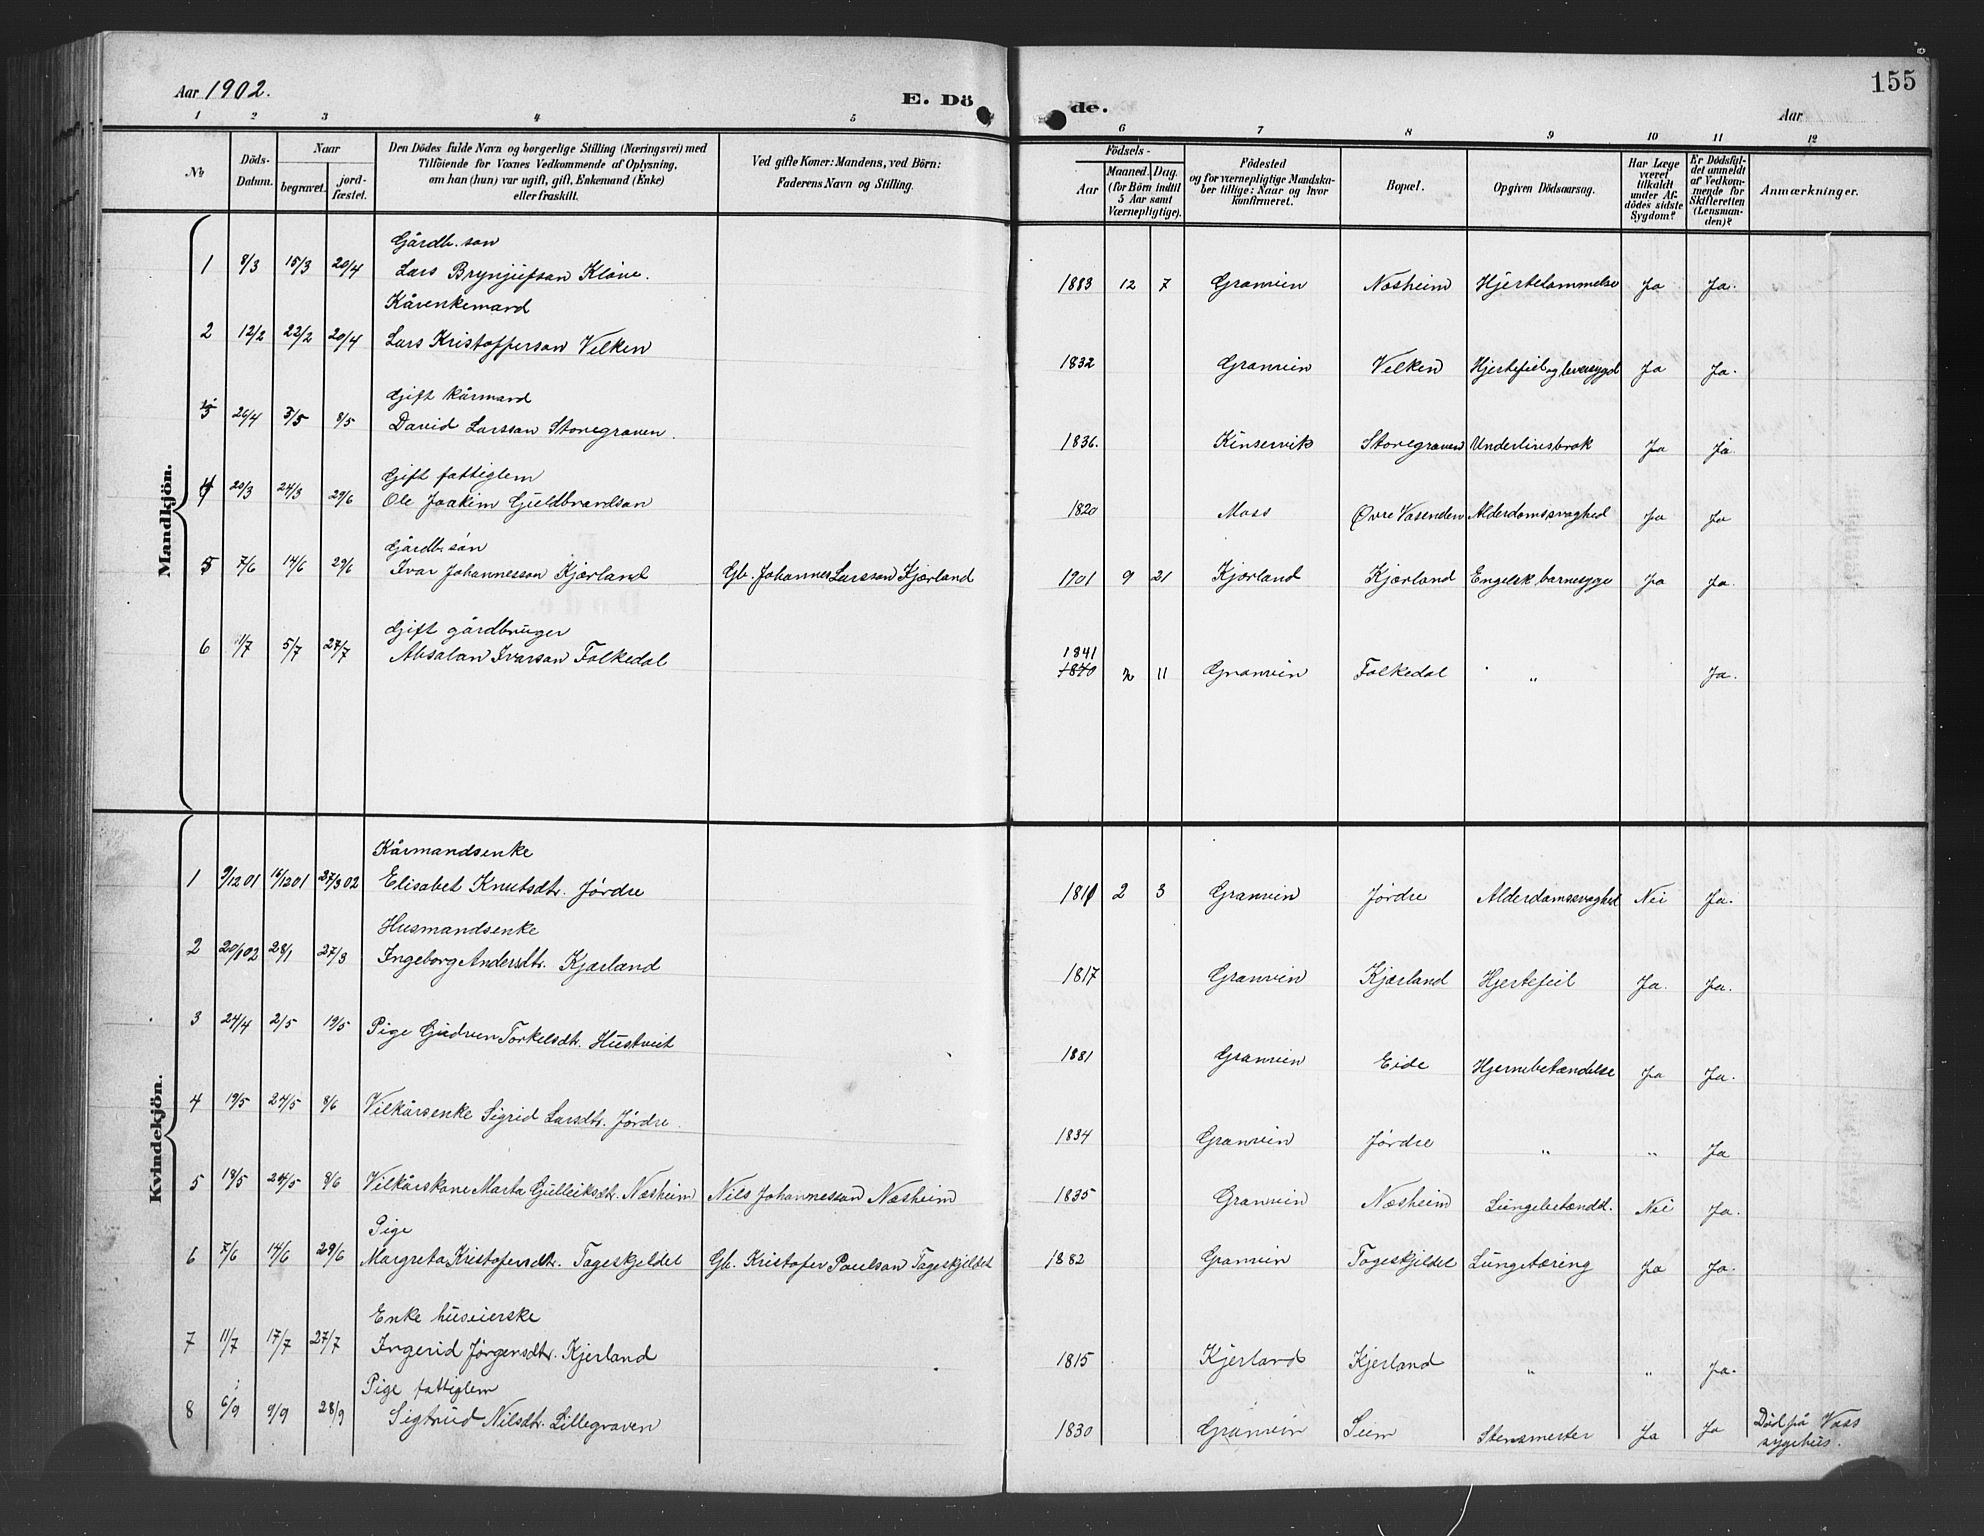 155
Aar 1902.
E. Dö
de.
Aar
1 2 3 4 5 6 7 8 9 10 11 12
No
Döds-
Datum.
Naar
begravet.
jord-
fæstet.
Den Dödes fulde Navn og borgerlige Stilling (Næringsvei) med
Tilföiende for Voxnes Vedkommende af Oplysning,
om han (hun) var ugift, gift, Enkemand (Enke)
eller fraskilt.
Ved gifte Koner: Mandens, ved Börn:
Faderens Navn og Stilling.
Födsels-
Aar
Maaned. Dag.
(for Börn indtil
5 Aar samt
Værnepligtige).
Födested
og for værnepligtige Mandska-
ber tillige: Naar og hvor
konfirmeret.
Bopæl.
Opgiven Dödsaarsag.
Har Læge
været
tilkaldt
under Af-
dödes sidste
Sygdom?
Er Dödsfal-
det anmeldt
af Vedkom-
mende for
Skifteretten
(Lensman-
den)?
Anmærkninger.
Mandkjön.
Gårdb. son
1 8/3 15/3 20/4 Lars Brynjulfson Kløve. 1883 12 7 Granvin Næsheim Hjertelammelse Ja Ja.
Kårenkemand
2 12/2 22/2 20/4 Lars Kristofferson Velken 1832 Granvin Velken Hjertefeil og leversygd Ja Ja.
Gift kårmand
3 26/4 3/5 8/5 David Larsson Storegraven. 1836. Kinservik Storegraven Underlivsbrok Ja Ja
Gift fattiglem
4 20/3 24/3 29/6 Ole Joakim Guldbrandson 1820 Moss Øvre Vasenden Alderdomssvaghed Ja Ja
Gårdb. søn
5 7/6 14/6 29/6 Ivar Johannesson Kjærland Gb. Johannes Larsson Kjærland 1901 9 21 Kjærland Kjærland Engelsk barnesyge Ja Ja.
Gift gårdbruger
6 1/7 5/7 27/7 Absalon Ivarson Folkedal 1841
1840 2 11 Granvin Folkedal " Ja.
Kvindekjön.
Kårmandsenke
1 9/12 01 16/12 01 27/3 02 Elisabet Knutsdtr. Jørdre 1811 2 3 Granvin Jørdre Alderdomssvaghed Nei Ja.
Husmandsenke
2 20/1 02 28/1 27/3 Ingeborg Andersdtr. Kjærland 1817 Granvin Kjærland Hjertefeil Ja. Ja.
3 24/4 2/5 19/5 Pige Gudrun Torkelsdtr. Hustveit 1881 Granvin Eide Hjernebetændelse Ja Ja.
4 19/5 24/5 8/6 Vilkårsenke Sigrid Larsdtr. Jørdre. 1834 Granvin Jørdre " " Ja
5 18/5 24/5 8/6 Vilkårskone Marta Gulleiksdtr. Næsheim Nils Johannesson Næsheim 1835 Granvin Næsheim Lungebetændd. Nei Ja.
Pige
6 7/6 14/6 29/6 Margreta Kristofersdtr. Tageskjeldet Gb. Kristofer Paulson Tageskjeldet 1882 Granvin Tageskjeldet Lungetæring Ja Ja.
Enke huseierske
7 11/7 17/7 27/7 Ingerid Jørgensdtr. Kjerland 1815 Kjerland Kjerland " " Ja.
Pige fattiglem
8 6/9 9/9 28/9 Sigtrud Nilsdtr. Lillegraven 1830 Granvin Seim Stensmerter Ja Ja Död på Voss
sygehus.